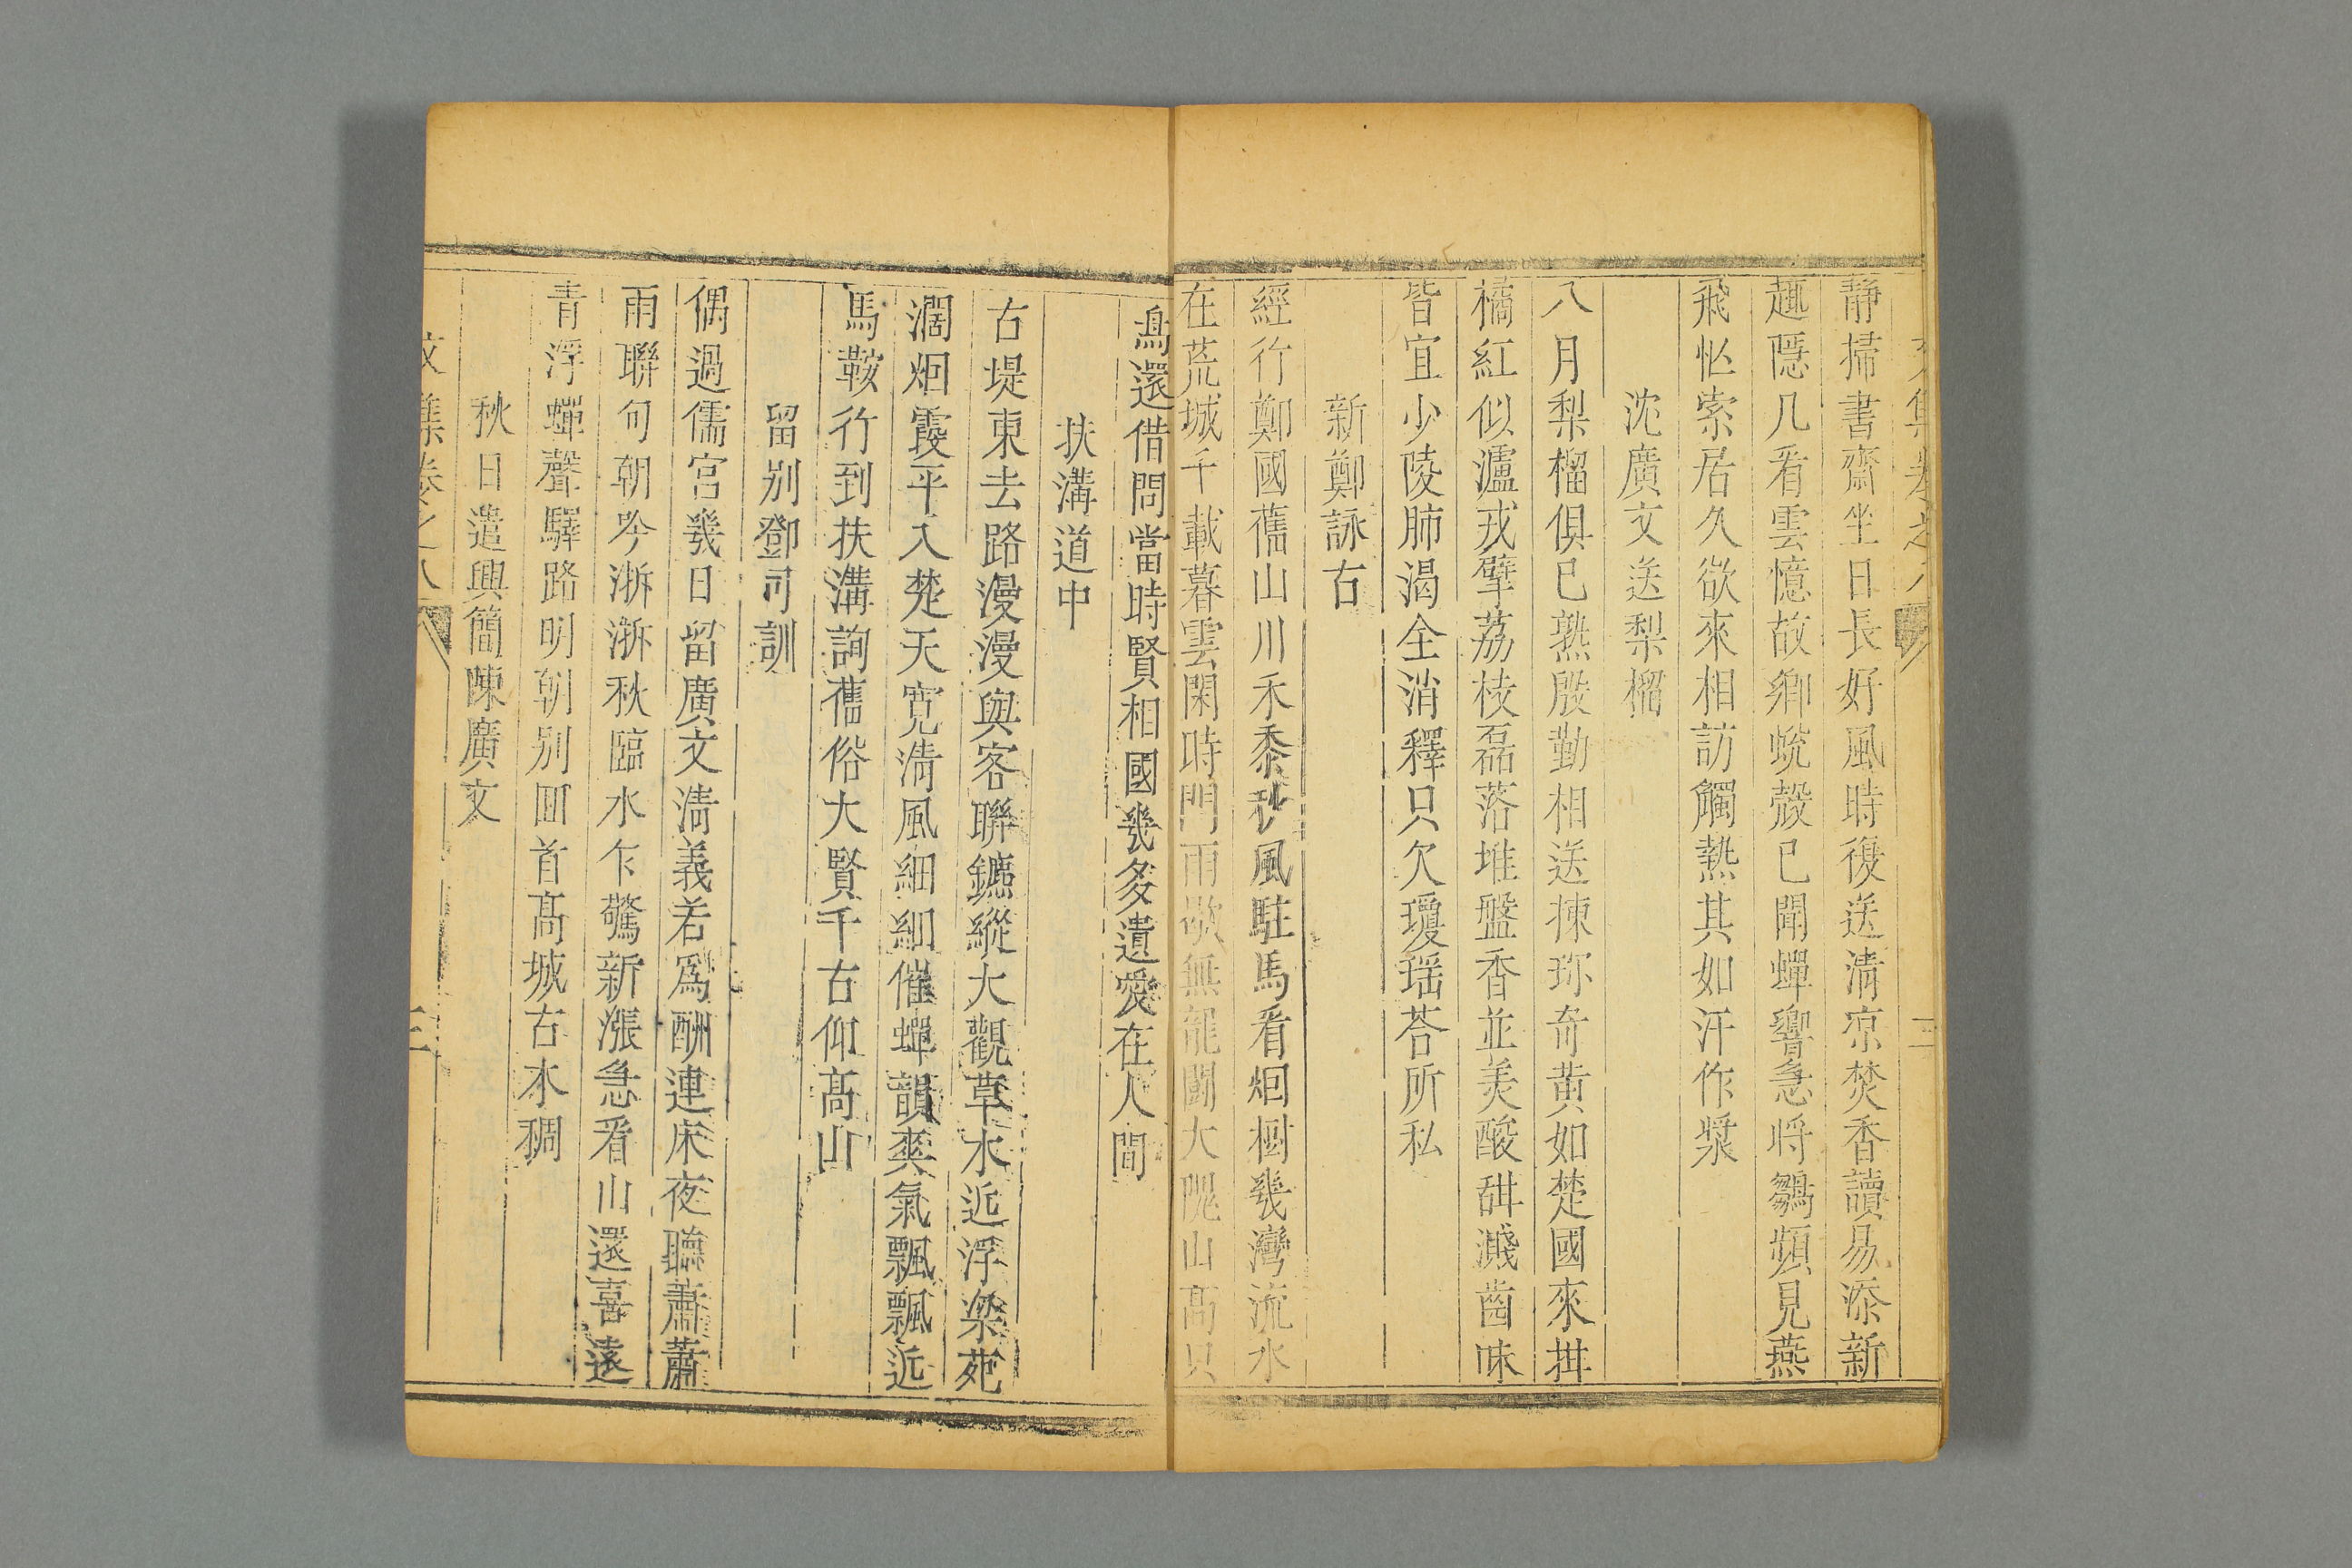 文集卷之八
二
靜掃書齋坐日長好風時復送清凉焚香讀易添新
趣隱几看雲憶故鄉蛻殼已聞蟬響急將鶵頻見燕
飛忙索居久欲來相訪觸熱其如汗作漿
沈廣文送梨榴
八月梨榴俱已熟殷勤相送揀珎奇黄如楚國來拑
橘紅似瀘戎擘荔枝磊落堆盤香並美酸甜濺齒味
皆宜少陵肺渴全消釋只欠瓊瑶荅所私
新鄭詠古
經行鄭國舊山川禾黍秋風駐馬看烟樹幾灣流水
在荒城千載暮雲閑時門雨歇無龍鬪大隗山高只
鳥還借問當時賢相國幾多遺愛在人間
扶溝道中
古堤東去路漫漫與客聯鑣縱大觀草水近浮梁苑
濶烟霞平入楚天寬清風細細催蟬韻爽氣飄飄近
馬鞍行到扶溝詢舊俗大賢千古仰高山
留别鄧司訓
偶過儒宫幾日留廣文清義若爲酬連床夜聽蕭蕭
雨聯句朝吟淅淅秋臨水乍驚新漲急看山還喜遠
青浮蟬聲驛路明朝别囬首高城古木稠
秋日遣興簡陳廣文
文集卷之八
三